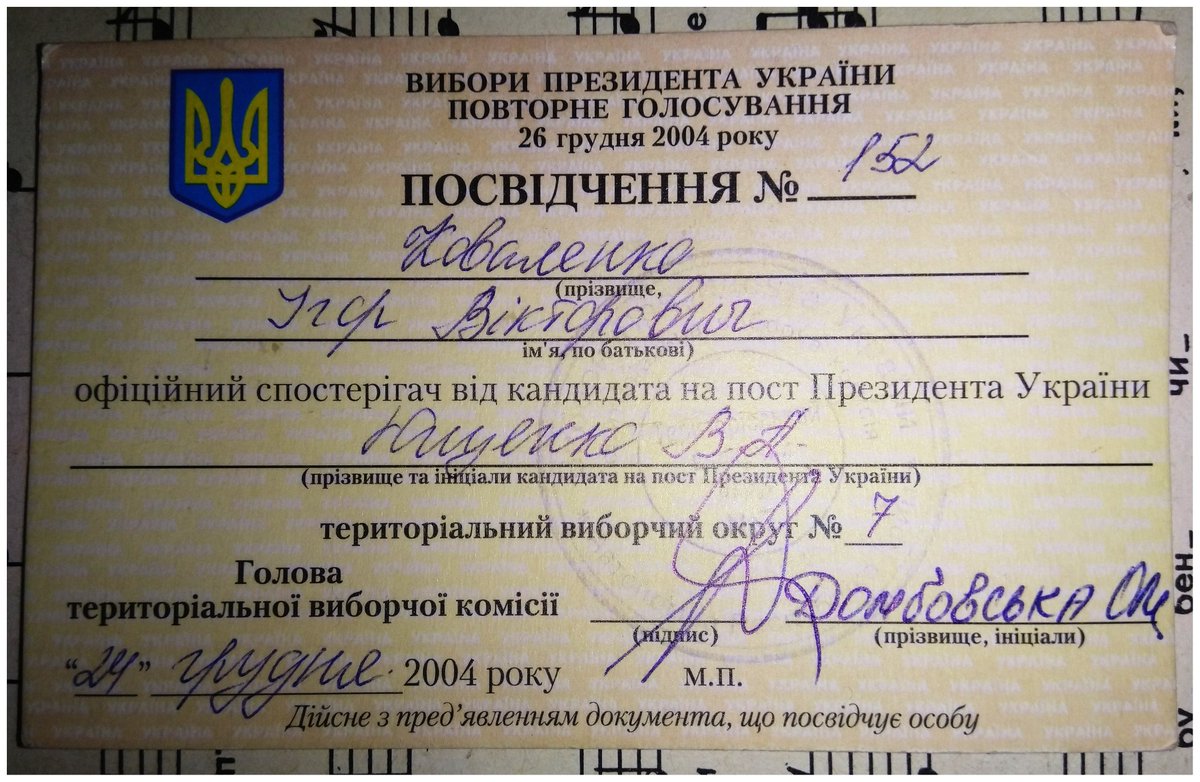 ВИБОРИ ПРЕЗИДЕНТА УКРАЇНИ
ПОВТОРНЕ ГОЛОСУВАННЯ
26 грудня 2004 року
ПОСВІДЧЕННЯ № 152
Коваленко
(прізвище,
Ігор Вікторович
ім'я, по батькові)
офіційний спостерігач від кандидата на пост Президента України
Ющенко В.А.
(прізвище та ініціали кандидата на пост Президента України)
територіальний виборчий округ № 7
Голова
територіальної виборчої комісії
Домбовська
(підпис) (прізвище, ініціали)
"24" грудня 2004 року м.п.
Дійсне з пред’явленням документа, що посвідчує особу